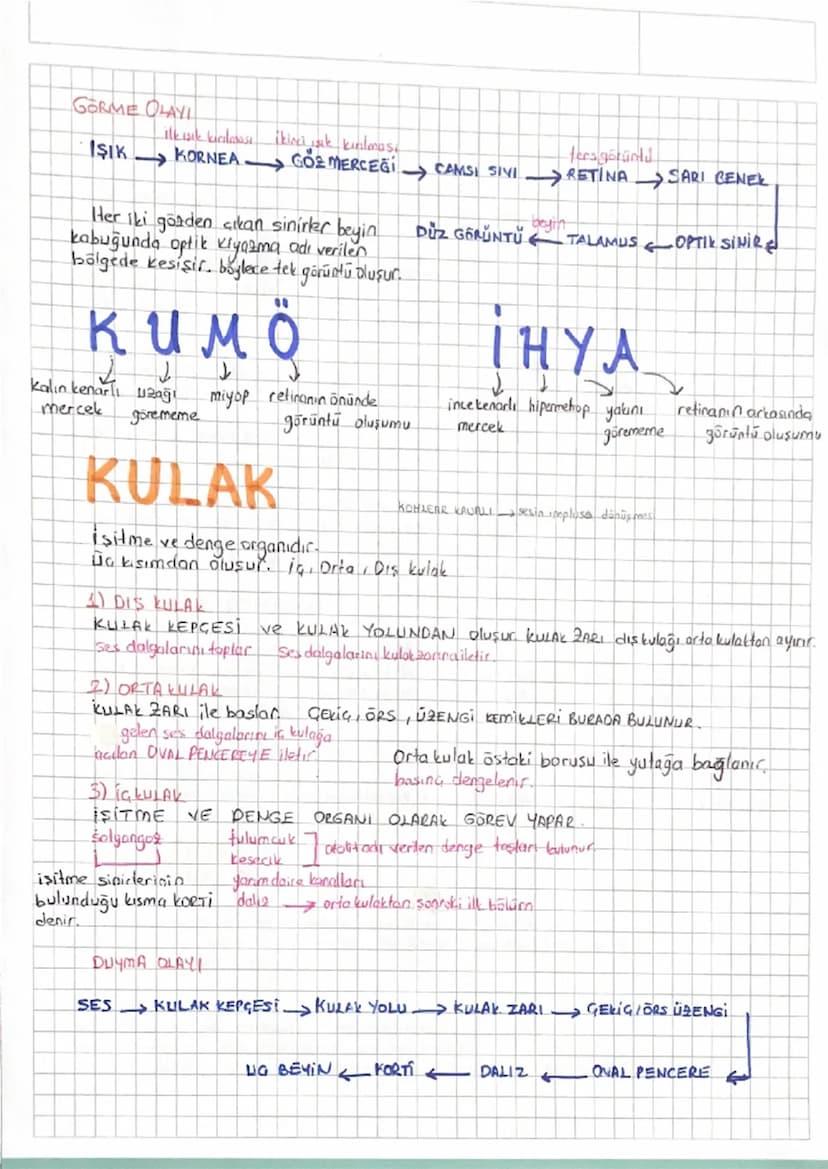 GÖRME OLAYI
ilk ışık kırılması ikinci ışık kırılması ters görüntü
IŞIK → KORNEA → GÖZ MERCEĞİ → CAMSI SIVI → RETİNA → SARI BENEK
Her iki gözden çıkan sinirler beyin
kabuğunda optik kiyazma adı verilen
bölgede kesişir. böylece tek görüntü oluşur.
beyin
DÜZ GÖRÜNTÜ ← TALAMUS ← OPTİK SİNİR
KUMÖ
kalın kenarlı mercek
uzağı görememe
miyop
retinanın önünde görüntü oluşumu
İHYA
ince kenarlı mercek
hipermetrop
yakını görememe
retinanın arkasında görüntü oluşumu
KULAK
KOHLEAR KANALI → sesin impulsa dönüşmesi
İşitme ve denge organıdır.
Üç kısımdan oluşur. İç, Orta, Dış kulak
1) DIŞ KULAK
KULAK KEPÇESİ ve KULAK YOLUNDAN oluşur. KULAK ZARI dış kulağı orta kulaktan ayırır.
Ses dalgalarını toplar Ses dalgalarını kulak zarına iletir.
2) ORTA KULAK
KULAK ZARI ile başlar. ÇEKİÇ, ÖRS, ÜZENGİ KEMİKLERİ BURADA BULUNUR.
gelen ses dalgalarını iç kulağa
açılan OVAL PENCEREYE iletir
Orta kulak östaki borusu ile yutağa bağlanır.
basınç dengelenir.
3) İÇ KULAK
İŞİTME VE DENGE ORGANI OLARAK GÖREV YAPAR.
Salyangoz tulumcuk
kesecik
otolit adı verilen denge taşları bulunur.
işitme sinirlerinin yarım daire kanalları
bulunduğu kısma KORTİ dalız → orta kulaktan sonraki ilk bölüm
denir.
DUYMA OLAYI
SES → KULAK KEPÇESİ → KULAK YOLU → KULAK ZARI → ÇEKİÇ/ÖRS ÜZENGİ
UÇ BEYİN ← KORTİ ← DALIZ ← OVAL PENCERE